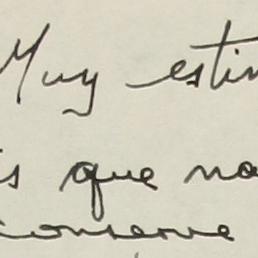 Muy estim
s que no
conserve